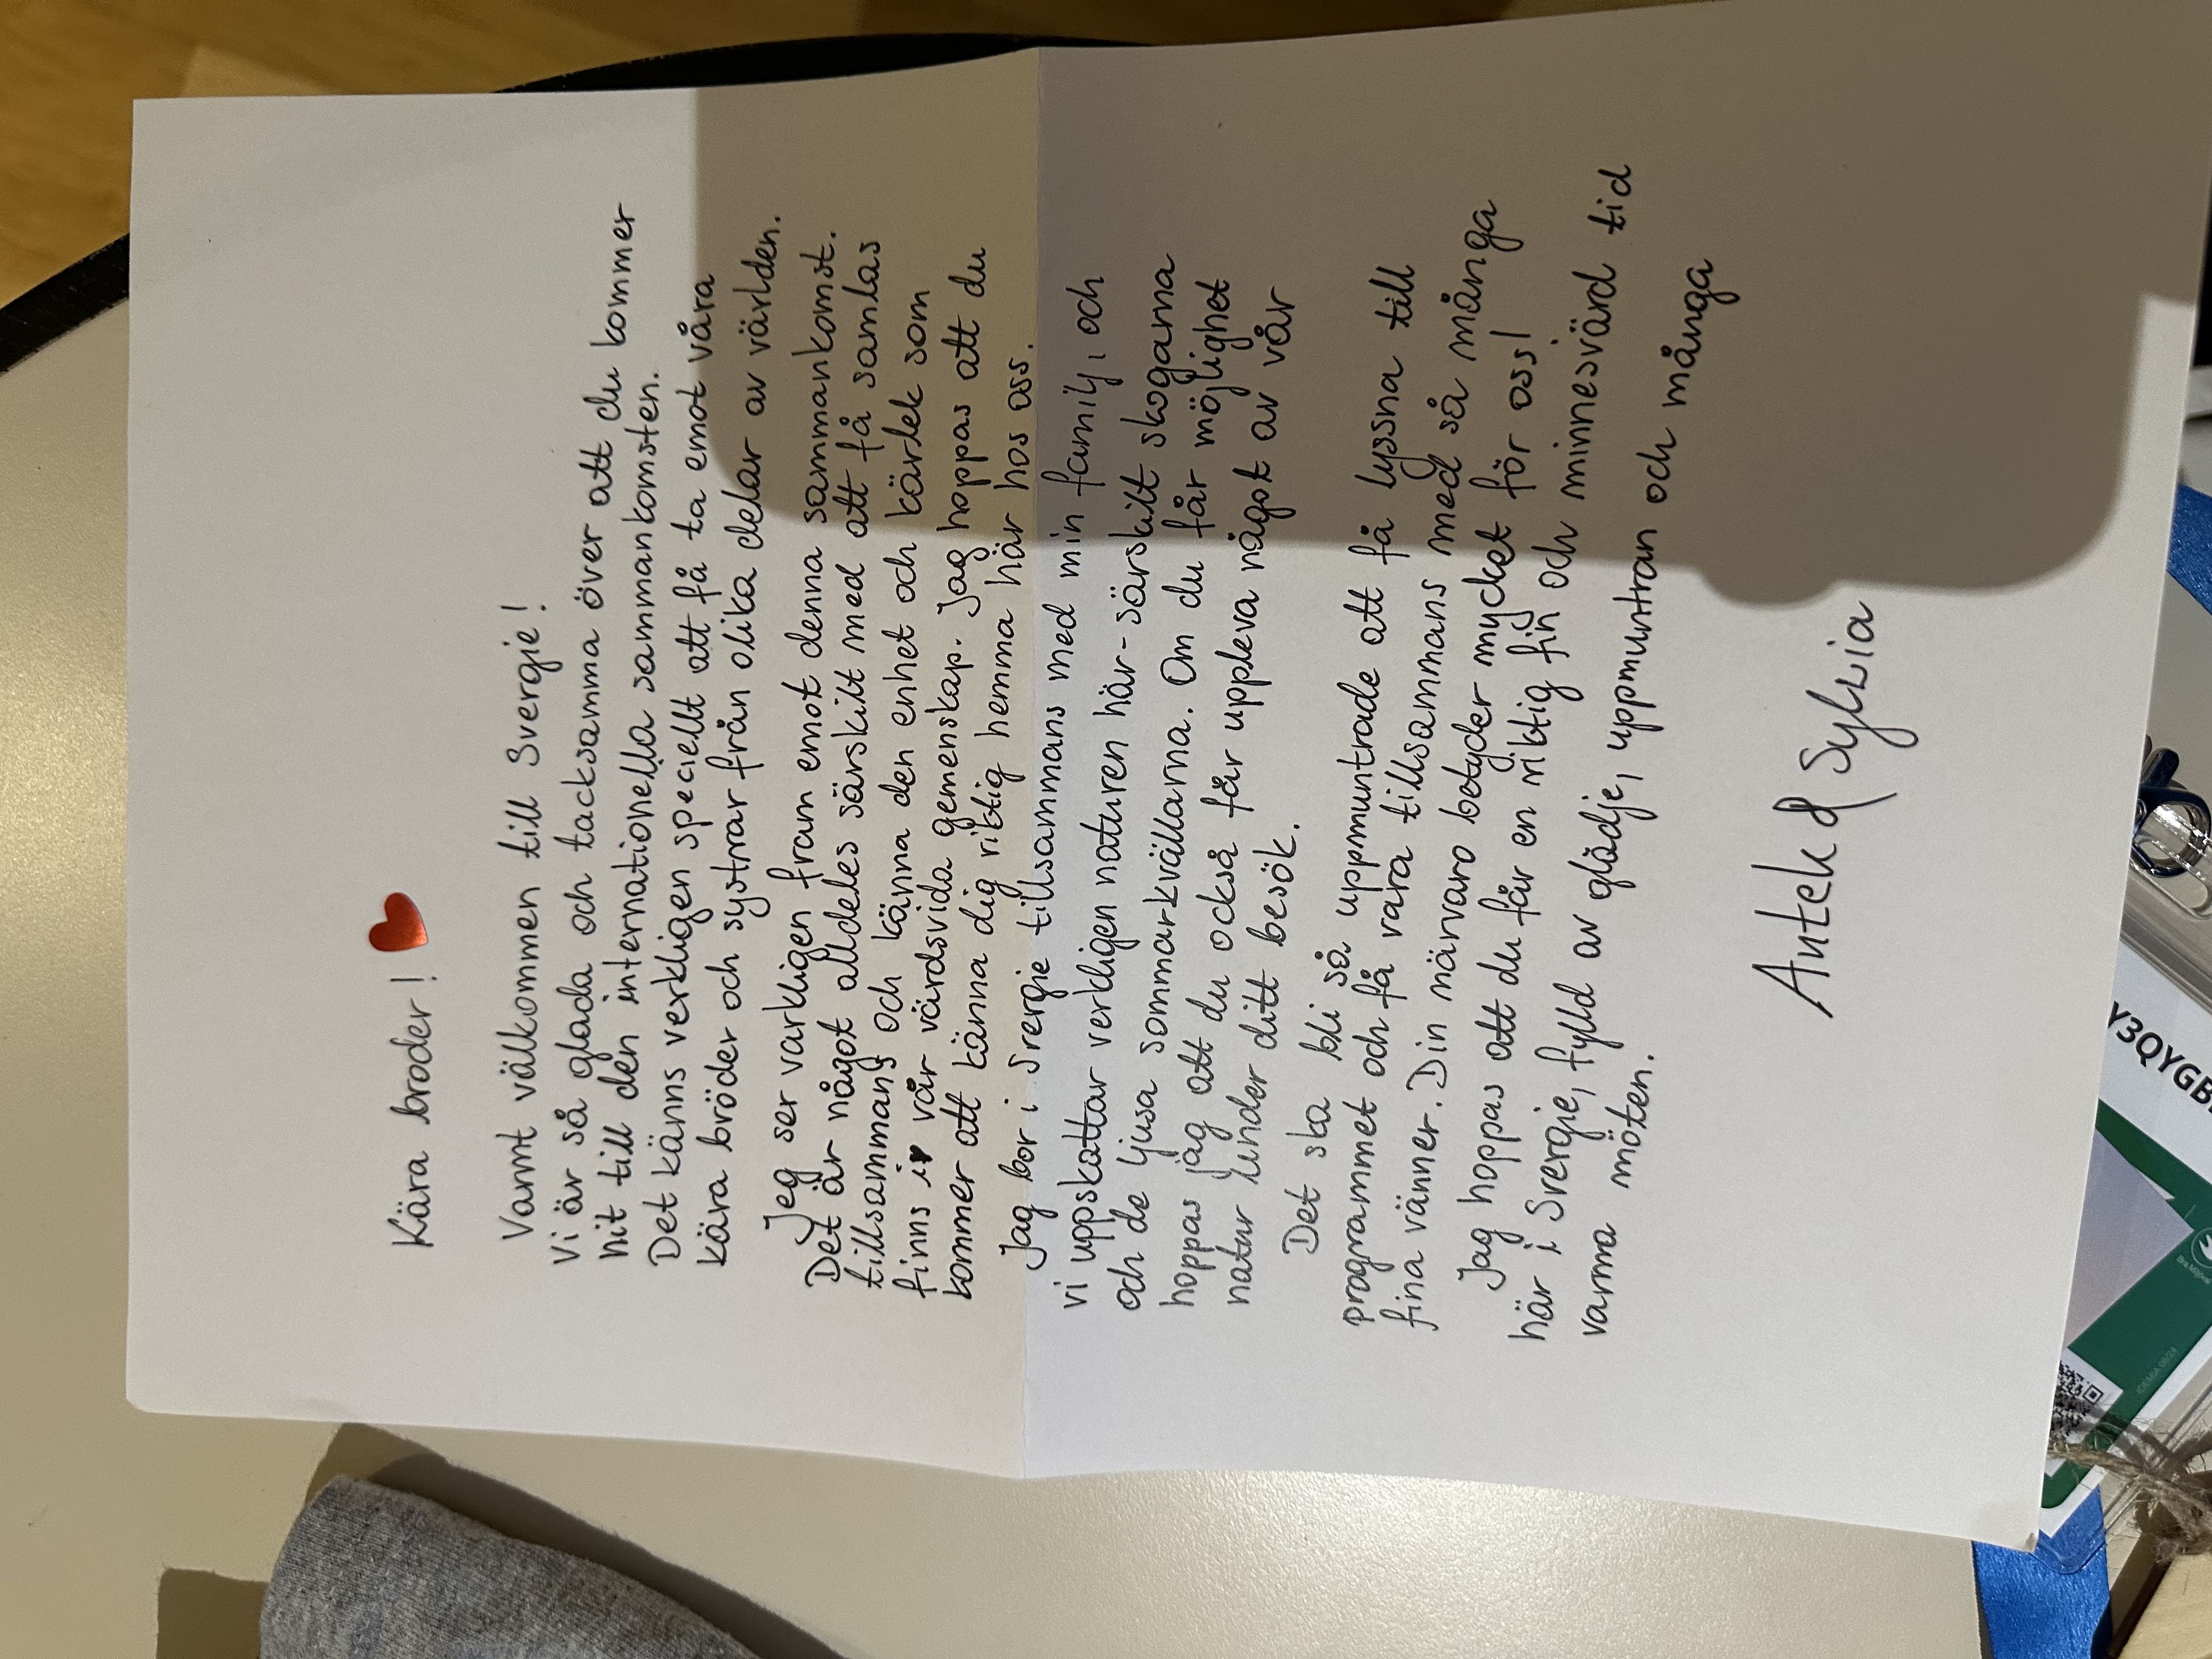 Kära broder! ❤️
Varmt välkommen till Svergie!
Vi är så glada och tacksamma över att du kommer
hit till den internationella sammankomsten.
Det känns verkligen speciellt att få ta emot våra
kära bröder och systrar från olika delar av världen.
Jeg ser varkligen fram emot denna sammankomst.
Det är något alldeles särskilt med att få samlas
tillsammans och känna den enhet och kärlek som
finns i vår värdsvida gemenskap. Jag hoppas att du
kommer att känna dig riktig hemma här hos oss.
Jag bor i Svergie tillsammans med min family, och
vi uppskattar verkligen naturen här - särskilt skoganna
och de ljusa sommarkvällarna. Om du får möjlighet
hoppas jag att du också får uppleva något av vår
natur under ditt besök.
Det ska bli så uppmuntrade att få lyssna till
programmet och få vara tillsammans med så många
fina vänner. Din närvaro betyder mycket för oss!
Jag hoppas att du får en riktig fin och minnesvärd tid
här i Svergie, fylld av glädje, uppmuntran och många
varma möten.
Antek & Sylwia
Y3QYGB